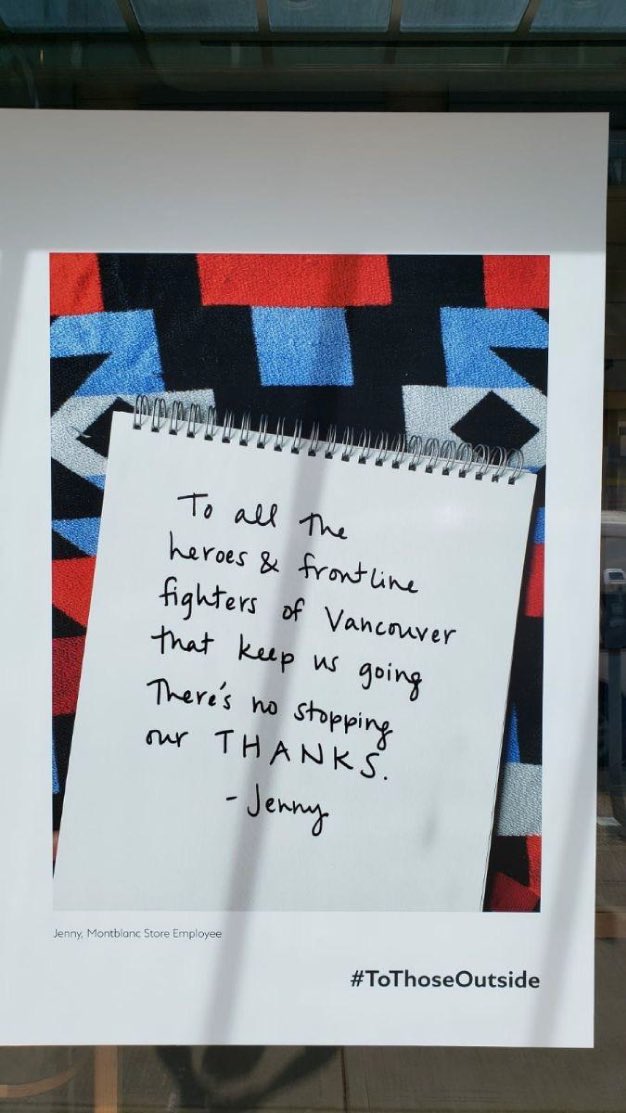 To all the
heroes & frontline
fighters of Vancouver
that keep us going
There's no stopping
our THANKS.
- Jenny
Jenny, Montblanc Store Employee
#ToThoseOutside